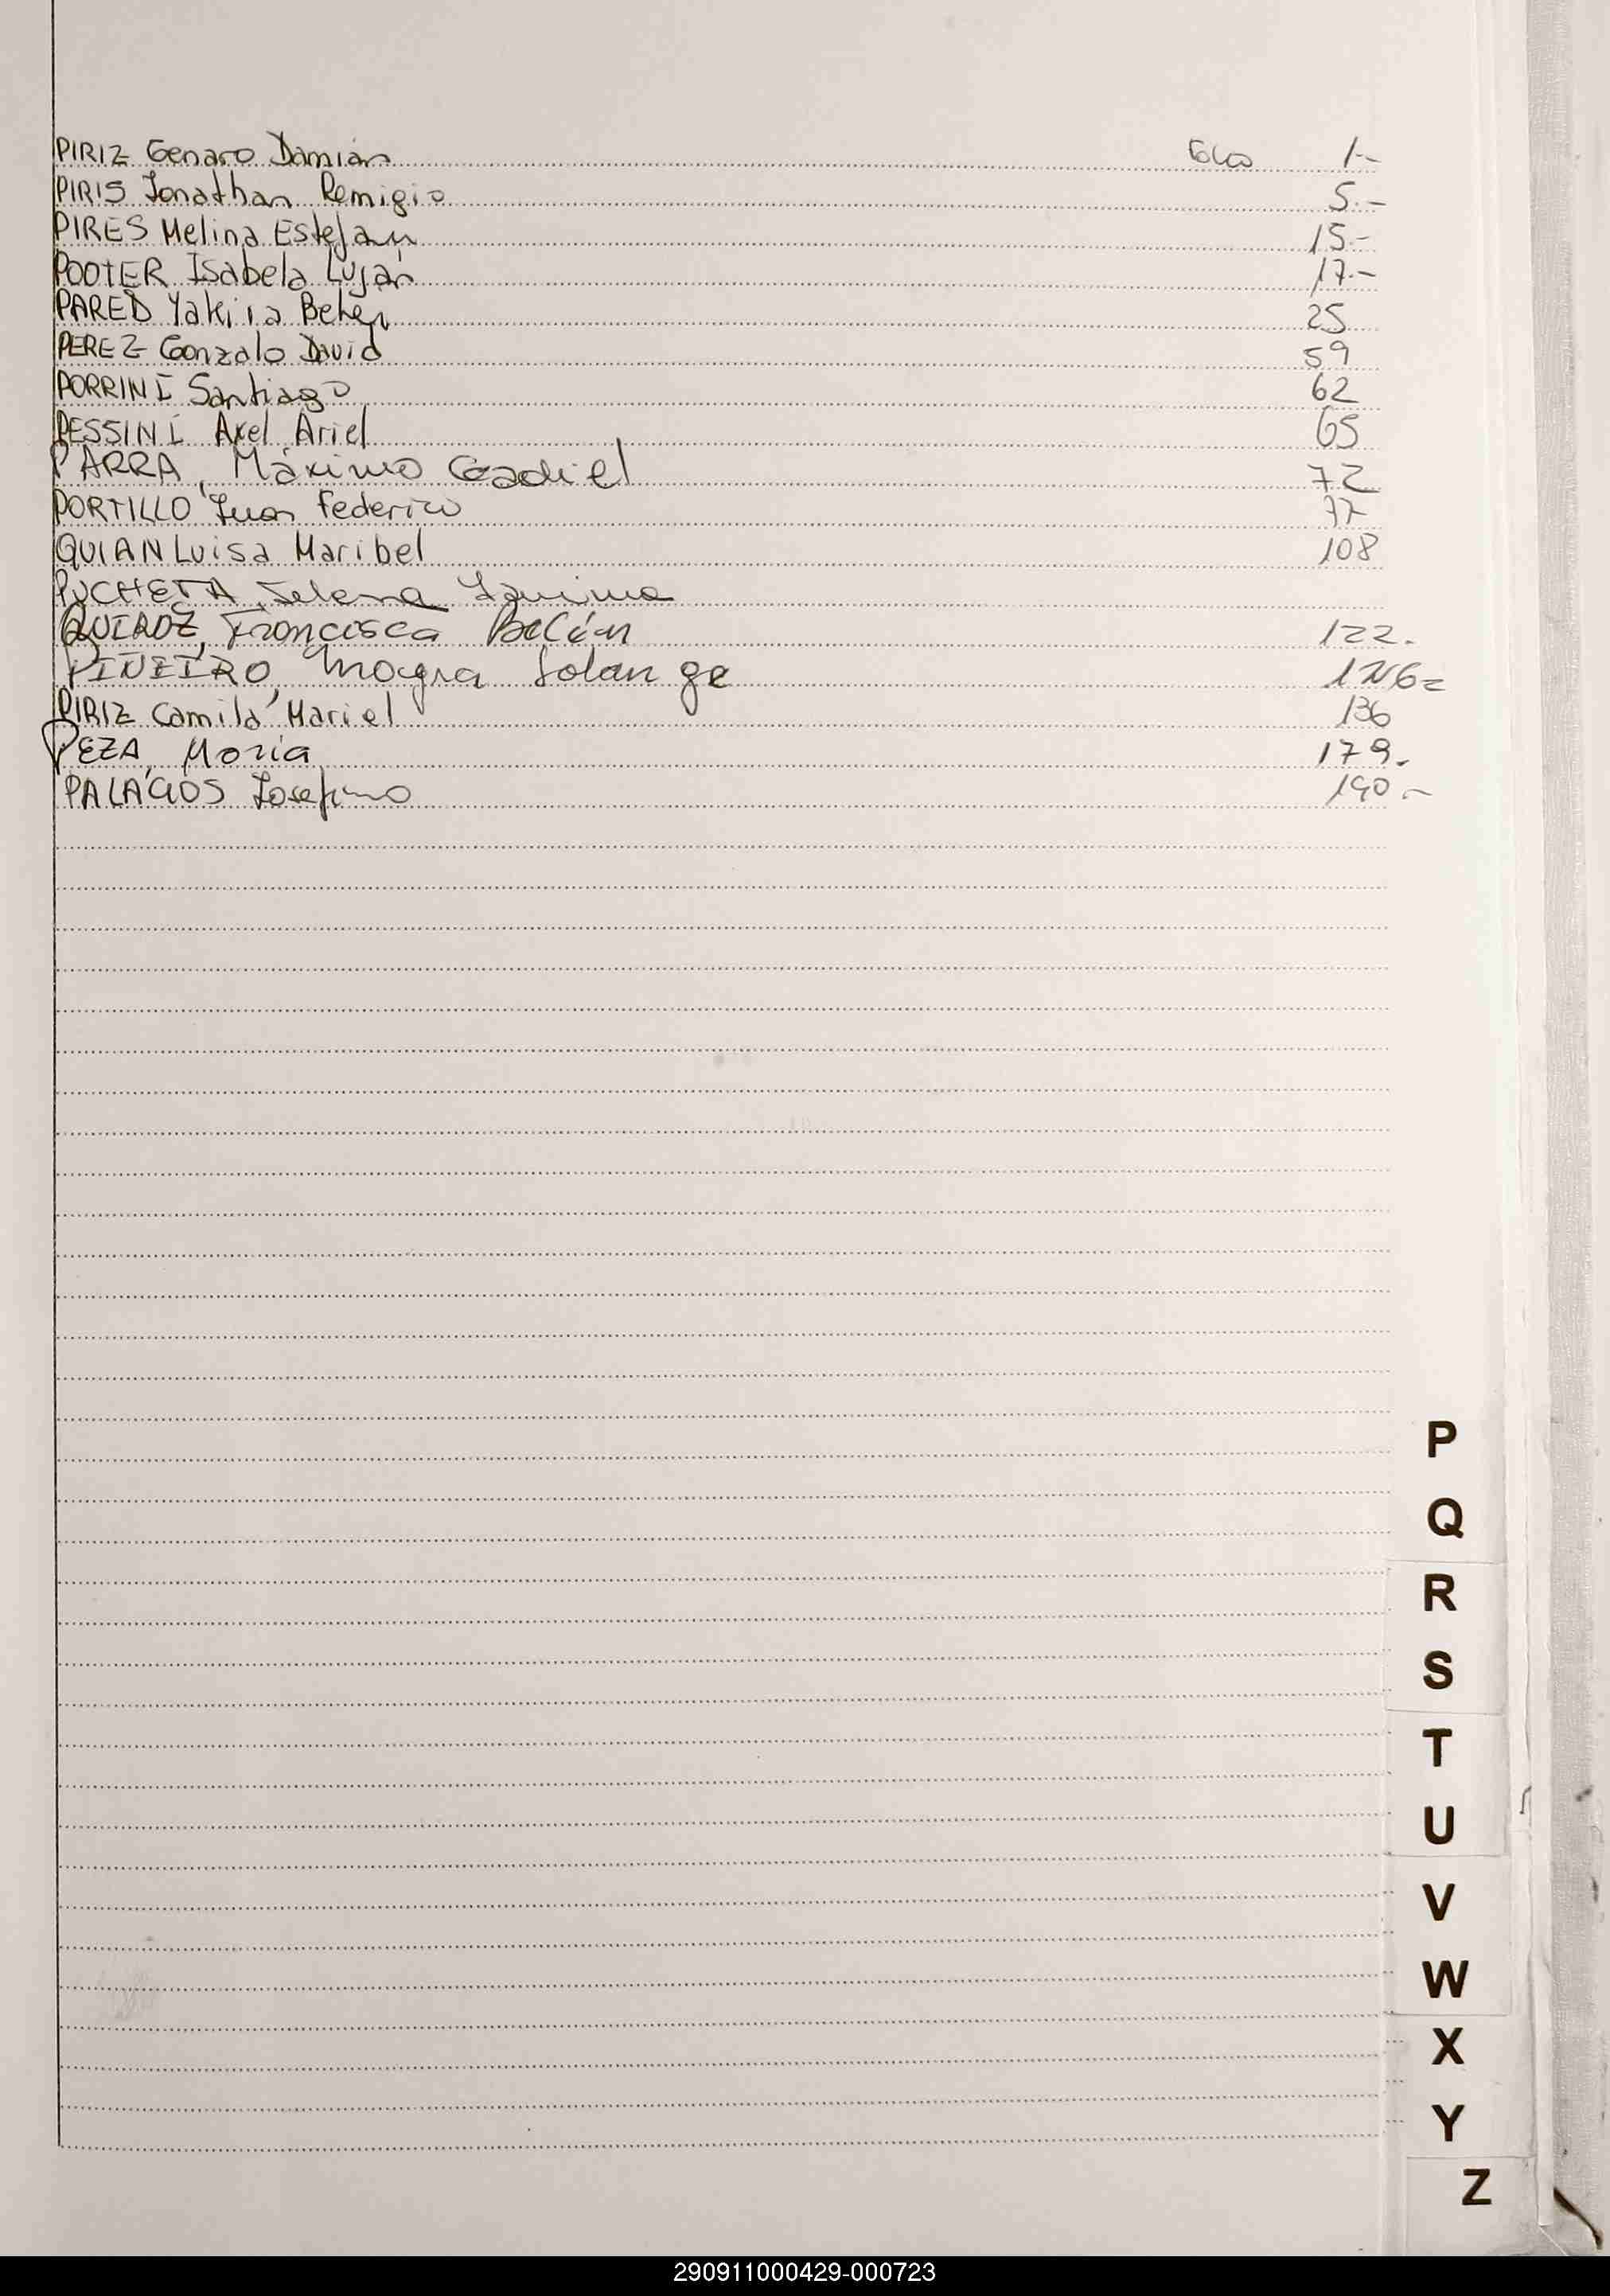 PIRIZ Genaro Damián Folio 1.-
PIRIS Jonathan Remigio 5.-
PIRES Melina Estefani 15.-
POOTER Isabela Luján 17.-
PARED Yakira Belen 25
PEREZ Gonzalo David 59
PORRINI Santiago 62
PESSINI Axel Ariel 65
PARRA, Máximo Gadiel 72
PORTILLO Juan Federico 77
QUIAN Luisa Maribel 108
PUCHETA, Selena
QUIROZ, Francisca Belén 122.
PIÑEIRO, Mayra Solange 126=
PIRIZ Camila Mariel 136
PEZA, Moria 179.
PALACIOS Josefina 190.-
P
Q
R
S
T
U
V
W
X
Y
Z
290911000429-000723